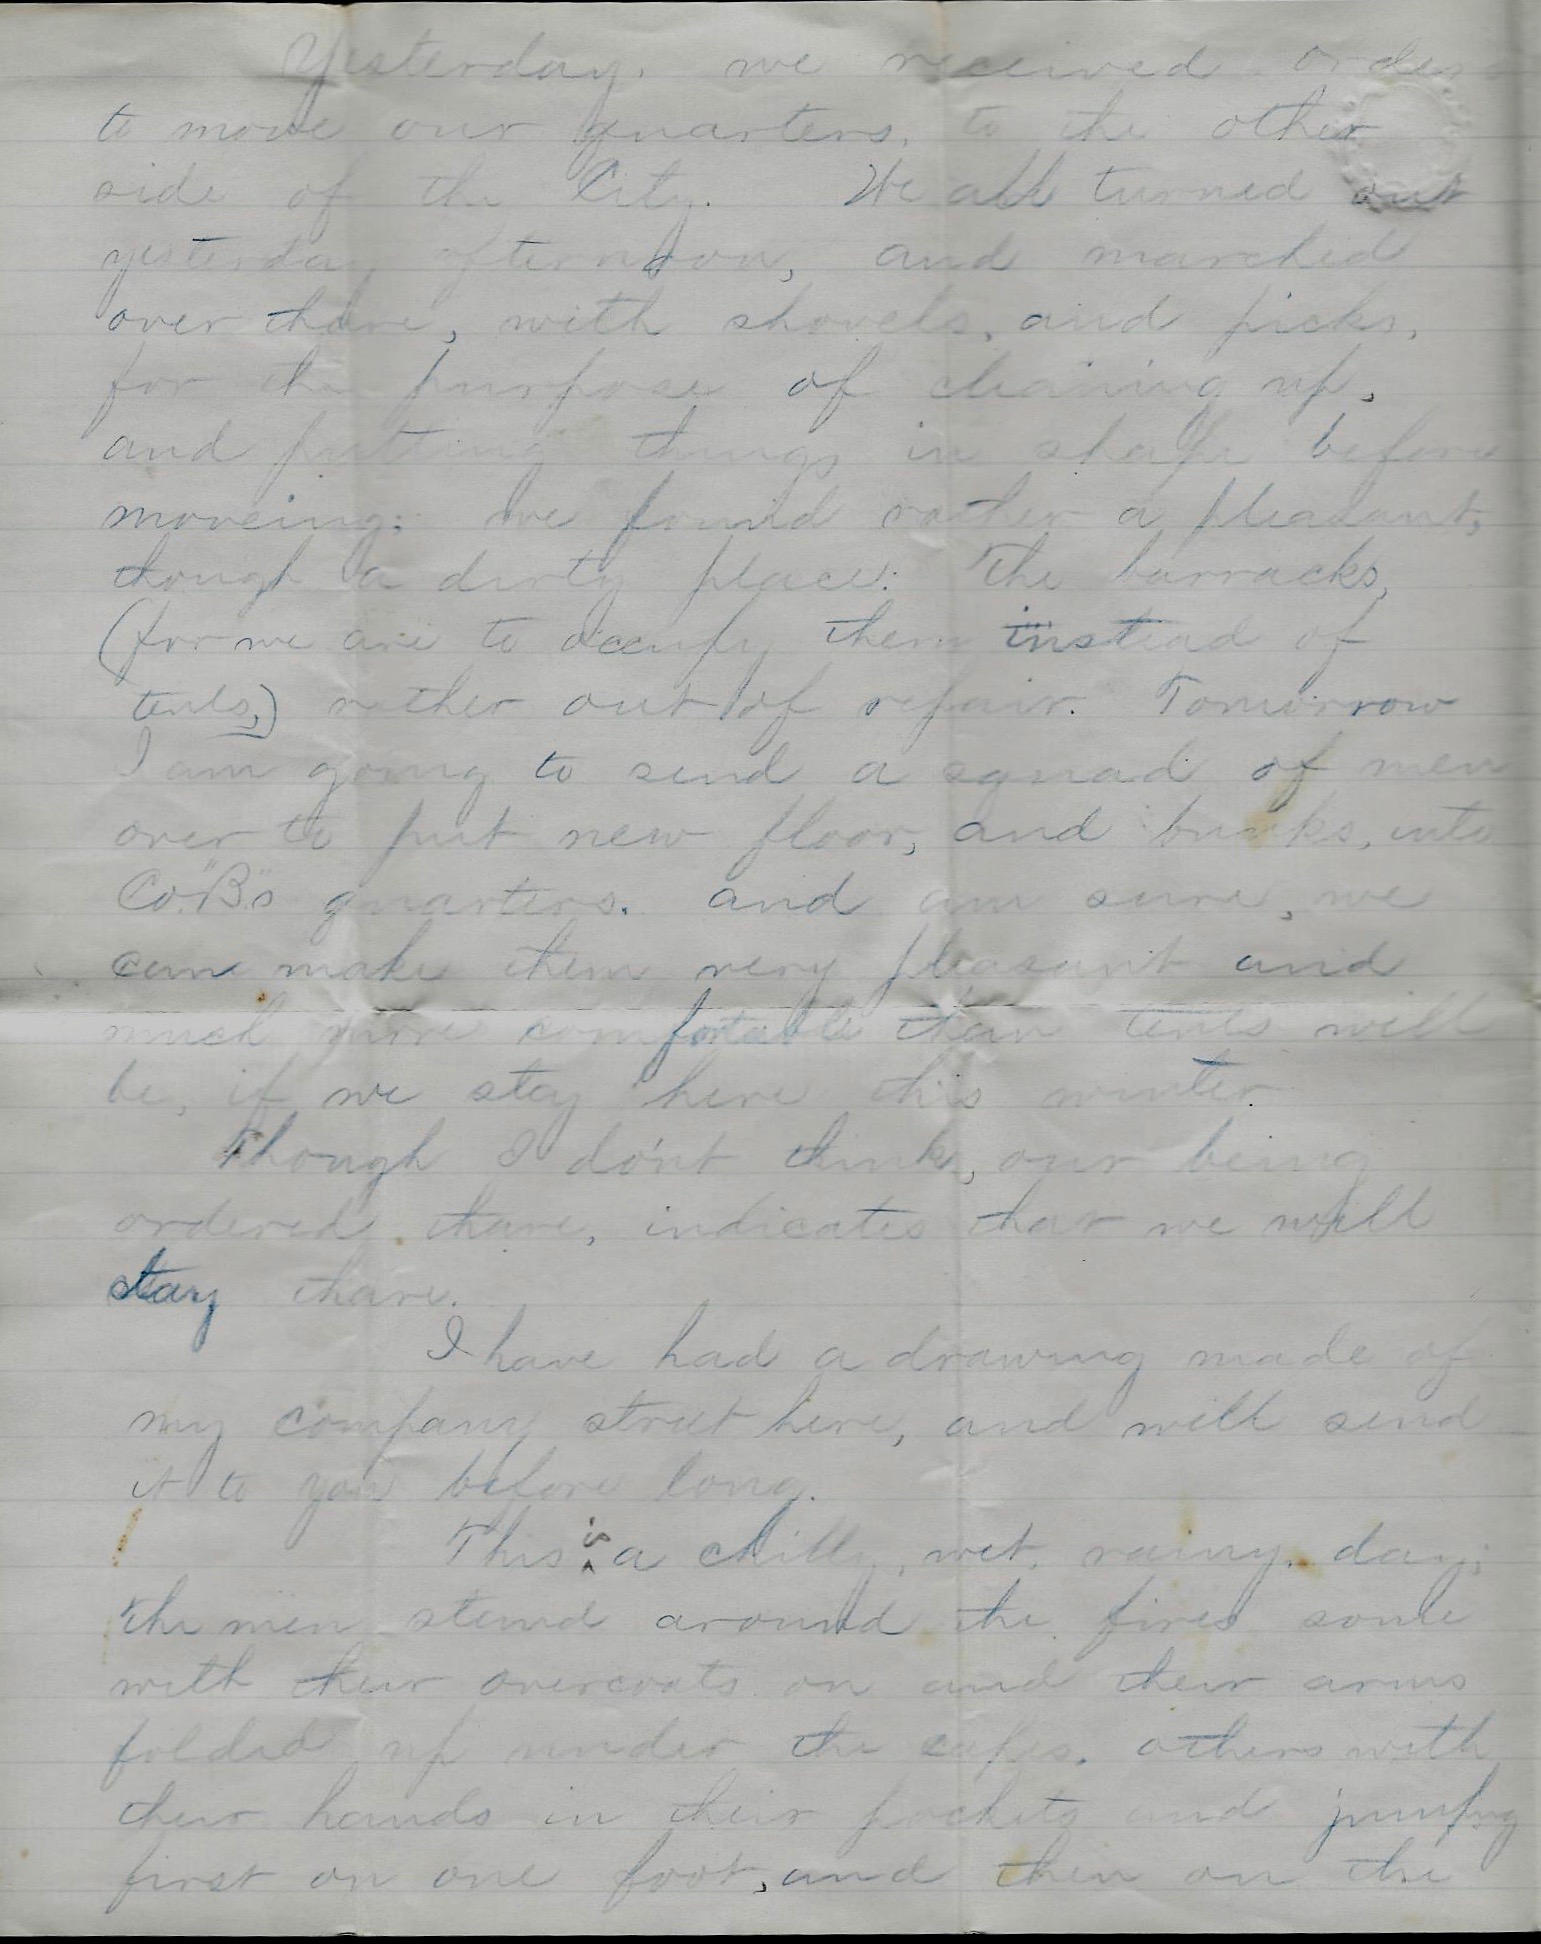 Yesterday, we received orders
to move our quarters, to the other
side of the City. We all turned out
yesterday afternoon, and marched
over thare, with shovels, and picks,
for the purpose of cleaning up,
and putting things in shape before
moveing; we found rather a pleasant,
though a dirty place: The barracks,
(for we are to occupy them instead of
tents,) rather out of repair. Tomorrow
I am going to send a squad of men
over to put new floor, and bunks, into
Co. "B"s quarters. and am sure, we
can make them very pleasant and
much more comfortable than tents will
be, if we stay here this winter.
Though I do'nt think, our being
ordered thare, indicates that we will
stay thare.
I have had a drawing made of
my company street here, and will send
it to you before long.
This is a chilly, wet, rainy, day;
the men stand around the fires some
with their overcoats on and their arms
folded up under the capes. others with
their hands in their pockets and jumping
first on one foot, and then on the